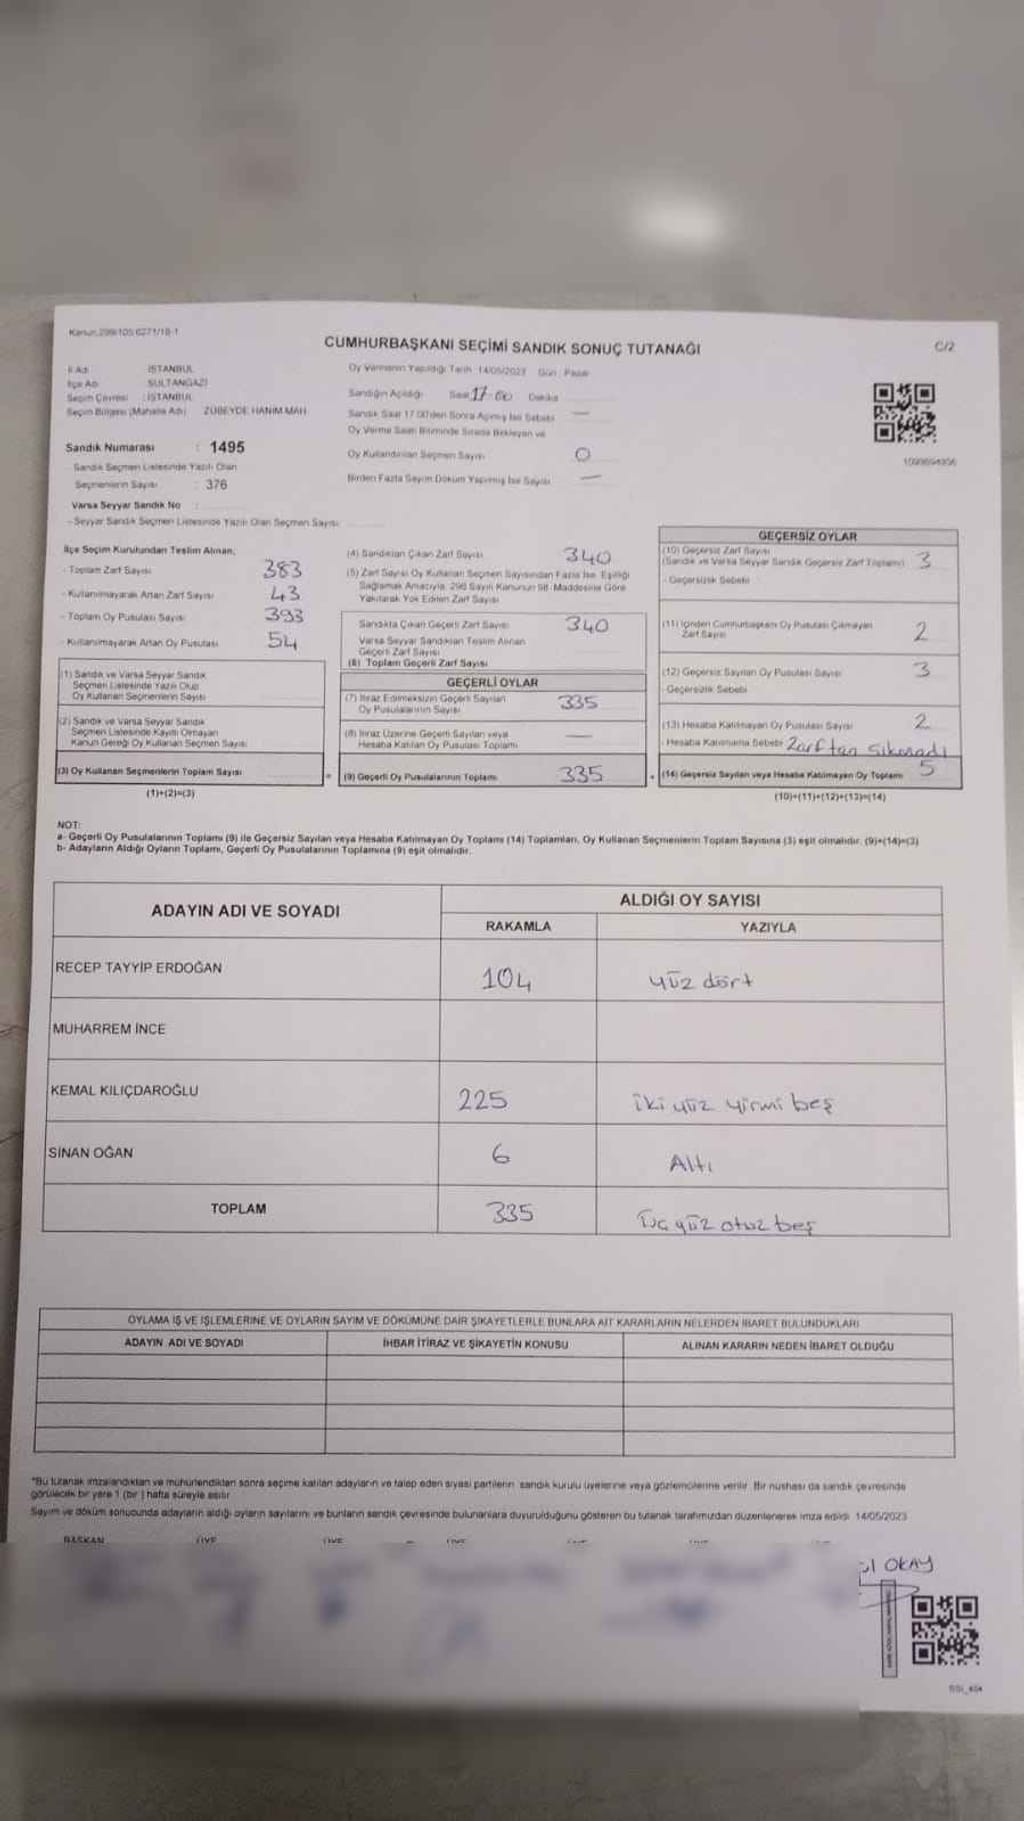 Kanun:298/105 6271/18-1
CUMHURBAŞKANI SEÇİMİ SANDIK SONUÇ TUTANAĞI
C/2
İl Adı İSTANBUL
İlçe Adı SULTANGAZİ
Seçim Çevresi : İSTANBUL
Seçim Bölgesi (Mahalle Adı) ZÜBEYDE HANIM MAH
Sandık Numarası : 1495
Sandık Seçmen Listesinde Yazılı Olan
Seçmenlerin Sayısı : 376
Varsa Seyyar Sandık No :
- Seyyar Sandık Seçmen Listesinde Yazılı Olan Seçmen Sayısı
Oy Vermenin Yapıldığı Tarih : 14/05/2023 Gün : Pazar
Sandığın Açıldığı Saat 17:00 Dakika
Sandık Saat 17.00'den Sonra Açılmış İse Sebebi —
Oy Verme Saati Bitiminde Sırada Bekleyen ve
Oy Kullandırılan Seçmen Sayısı 0
Birden Fazla Sayım Döküm Yapılmış İse Sayısı —
İlçe Seçim Kurulundan Teslim Alınan;
- Toplam Zarf Sayısı 383
- Kullanılmayarak Artan Zarf Sayısı 43
- Toplam Oy Pusulası Sayısı 393
- Kullanılmayarak Artan Oy Pusulası 54
(1) Sandık ve Varsa Seyyar Sandık
Seçmen Listesinde Yazılı Olup
Oy Kullanan Seçmenlerin Sayısı
(2) Sandık ve Varsa Seyyar Sandık
Seçmen Listesinde Kayıtlı Olmayan
Kanun Gereği Oy Kullanan Seçmen Sayısı
(3) Oy Kullanan Seçmenlerin Toplam Sayısı
(1)+(2)=(3)
(4) Sandıktan Çıkan Zarf Sayısı 340
(5) Zarf Sayısı Oy Kullanan Seçmen Sayısından Fazla İse, Eşitliği
Sağlamak Amacıyla, 298 Sayılı Kanunun 98. Maddesine Göre
Yakılarak Yok Edilen Zarf Sayısı
Sandıkta Çıkan Geçerli Zarf Sayısı 340
Varsa Seyyar Sandıktan Teslim Alınan
Geçerli Zarf Sayısı
(6) Toplam Geçerli Zarf Sayısı
GEÇERLİ OYLAR
(7) İtiraz Edilmeksizin Geçerli Sayılan
Oy Pusulalarının Sayısı 335
(8) İtiraz Üzerine Geçerli Sayılan veya
Hesaba Katılan Oy Pusulası Toplamı —
(9) Geçerli Oy Pusulalarının Toplamı 335
GEÇERSİZ OYLAR
(10) Geçersiz Zarf Sayısı
(Sandık ve Varsa Seyyar Sandık Geçersiz Zarf Toplamı) 3
- Geçersizlik Sebebi
(11) İçinden Cumhurbaşkanı Oy Pusulası Çıkmayan
Zarf Sayısı 2
(12) Geçersiz Sayılan Oy Pusulası Sayısı 3
- Geçersizlik Sebebi
(13) Hesaba Katılmayan Oy Pusulası Sayısı 2
- Hesaba Katılmama Sebebi Zarftan çıkmadı
(14) Geçersiz Sayılan veya Hesaba Katılmayan Oy Toplamı 5
(10)+(11)+(12)+(13)=(14)
NOT:
a- Geçerli Oy Pusulalarının Toplamı (9) ile Geçersiz Sayılan veya Hesaba Katılmayan Oy Toplamı (14) Toplamları, Oy Kullanan Seçmenlerin Toplam Sayısına (3) eşit olmalıdır. (9)+(14)=(3)
b- Adayların Aldığı Oyların Toplamı, Geçerli Oy Pusulalarının Toplamına (9) eşit olmalıdır.
ADAYIN ADI VE SOYADI
ALDIĞI OY SAYISI
RAKAMLA YAZIYLA
RECEP TAYYİP ERDOĞAN 104 yüz dört
MUHARREM İNCE
KEMAL KILIÇDAROĞLU 225 iki yüz yirmi beş
SİNAN OĞAN 6 Altı
TOPLAM 335 Üç yüz otuz beş
OYLAMA İŞ VE İŞLEMLERİNE VE OYLARIN SAYIM VE DÖKÜMÜNE DAİR ŞİKAYETLERLE BUNLARA AİT KARARLARIN NELERDEN İBARET BULUNDUKLARI
ADAYIN ADI VE SOYADI İHBAR İTİRAZ VE ŞİKAYETİN KONUSU ALINAN KARARIN NEDEN İBARET OLDUĞU
*Bu tutanak imzalandıktan ve mühürlendikten sonra seçime katılan adayların ve talep eden siyasi partilerin sandık kurulu üyelerine veya gözlemcilerine verilir. Bir nüshası da sandık çevresinde
görülecek bir yere 1 (bir) hafta süreyle asılır.
Sayım ve döküm sonucunda adayların aldığı oyların sayılarını ve bunların sandık çevresinde bulunanlara duyurulduğunu gösteren bu tutanak tarafımızdan düzenlenerek imza edildi. 14/05/2023
BAŞKAN ÜYE ÜYE ÜYE
OKAY